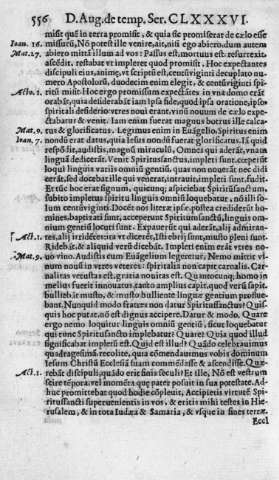 556 D. Aug. de temp. Ser. CLXXXVI.
misit quē in terra promisit, & quia sic promiserat de cælo esse
Ioan. 16. missurū, Nō potest ille venire, ait, nisi ego abiero. dum autem
Mat. 27. abiero mittā illum ad vos: Passus est, mortuus est. resurrexit.
ascēdit. restabat vt impleret quod promisit, Hoc expectantes
discipuli eius, animæ, vt scriptū est, centūviginti decuplato nu-
mero Apostolorū, duodecim enim elegit, & centūviginti spi-
Acto. 1. ritū misit Hoc ergo promissum expectātes in vna domo erāt
orābāt, quia desiderabāt iam ipsa fide, quod ipsa oratione, ipso
spiritali desiderio vtres noui erant, vinū nouum de cælo expe-
ctabatur & venit, Iam enim fuerat magnus botrus ille calca-
Mat. 9. tus & glorificatus. Legimus enim in Euāgelio, Spiritus enim
Ioan. 7. nondū erat datus, quia Iesus nondū fuerat glorificatus. Iā quid
respōsū sit, audistis, magnū miraculū, Omnes qui aderāt, vnam
linguā didicerāt. Venit Spiritussanctus, impleti sunt, cœperūt
loqui linguis variis omniū gentiū, quas non nouerāt, nec didi-
cerāt, sed docebat ille qui venerat, intrauit, impleti sunt, fudit.
Et tūc hoc erat signum, quicunq; accipiebat Spiritūsanctum,
subito impletus spiritu linguis omniū loquebatur, nō illi so-
lum centūviginti. Docēt nos literæ ipsæ, postea crediderūt ho-
mines, baptizati sunt, acceperunt Spiritumsanctū, linguis om-
nium gentiū locuti sunt. Expauerūt qui aderāt, alij admiran-
Act. 2. tes, alij irridētes, ita vt dicerēt, Hi ebrij sunt, musto pleni sunt.
Ridebāt, & aliquid verū dicebāt. Impleti enim erāt vtres no-
Mat. 9. uo vino. Audistis cum Euāgelium legeretur, Nemo mittit vi-
num nouū in vtres veteres: spiritalia non capit carnalis. Car-
nalitas vetustas est, gratia nouitas est. Quātocunq; homo in
melius fuerit innouatus, tanto amplius capit, quod verū sapit.
bulliebat mustū, & musto bulliente linguæ gentium profue-
bant. Nunquid modo fratres non datur Spiritussanctus? Quis-
quis hoc putat, nō est dignus accipere. Datur & modo. Quare
ergo nemo loquitur linguis omniū gentiū, sicut loquebatur
qui tunc Spiritusancto implebatur? Quare? Quia quod illud
significabat impletū est. Quid est illud? Quādo celebrauimus
quadragesimā. recolite, quia cōmendauimus vobis dominum
Iesum Christū Ecclesiā suam commēdasse & ascendisse. Quæ-
Act. 1. rebāt discipuli, quādo erit finis seculi? Et ille, Nō est vestrum
scire tēpora, vel momēta quæ pater posuit in sua potestate. Ad-
huc promittebat quod hodie cōpleuit, Accipietis virtutē Spi-
ritussancti superuenientis in vos, & eritis mihi testes in Hie-
rusalem, & in tota Iudæa & Samaria, & vsque in fines terræ.
Eccl